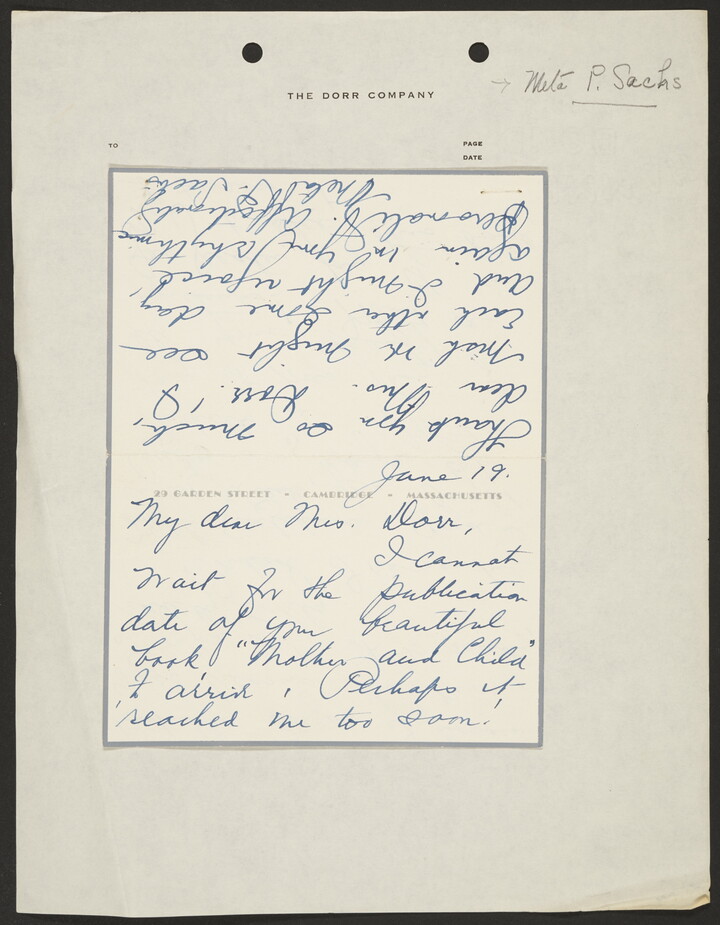 THE DORR COMPANY
→ Meta P. Sachs
TO
PAGE
DATE
June 19.
29 GARDEN STREET • CAMBRIDGE • MASSACHUSETTS
My dear Mrs. Dorr,
I cannot
wait for the publication
date of your beautiful
book, "Mother and Child"
to arrive! Perhaps it
reached me too soon!
Thank you so much,
dear Mrs. Dorr! I
wish we might see
each other some day,
and I might rejoice
again in your rhythmic
personality. Affectionately
Meta P. Sachs